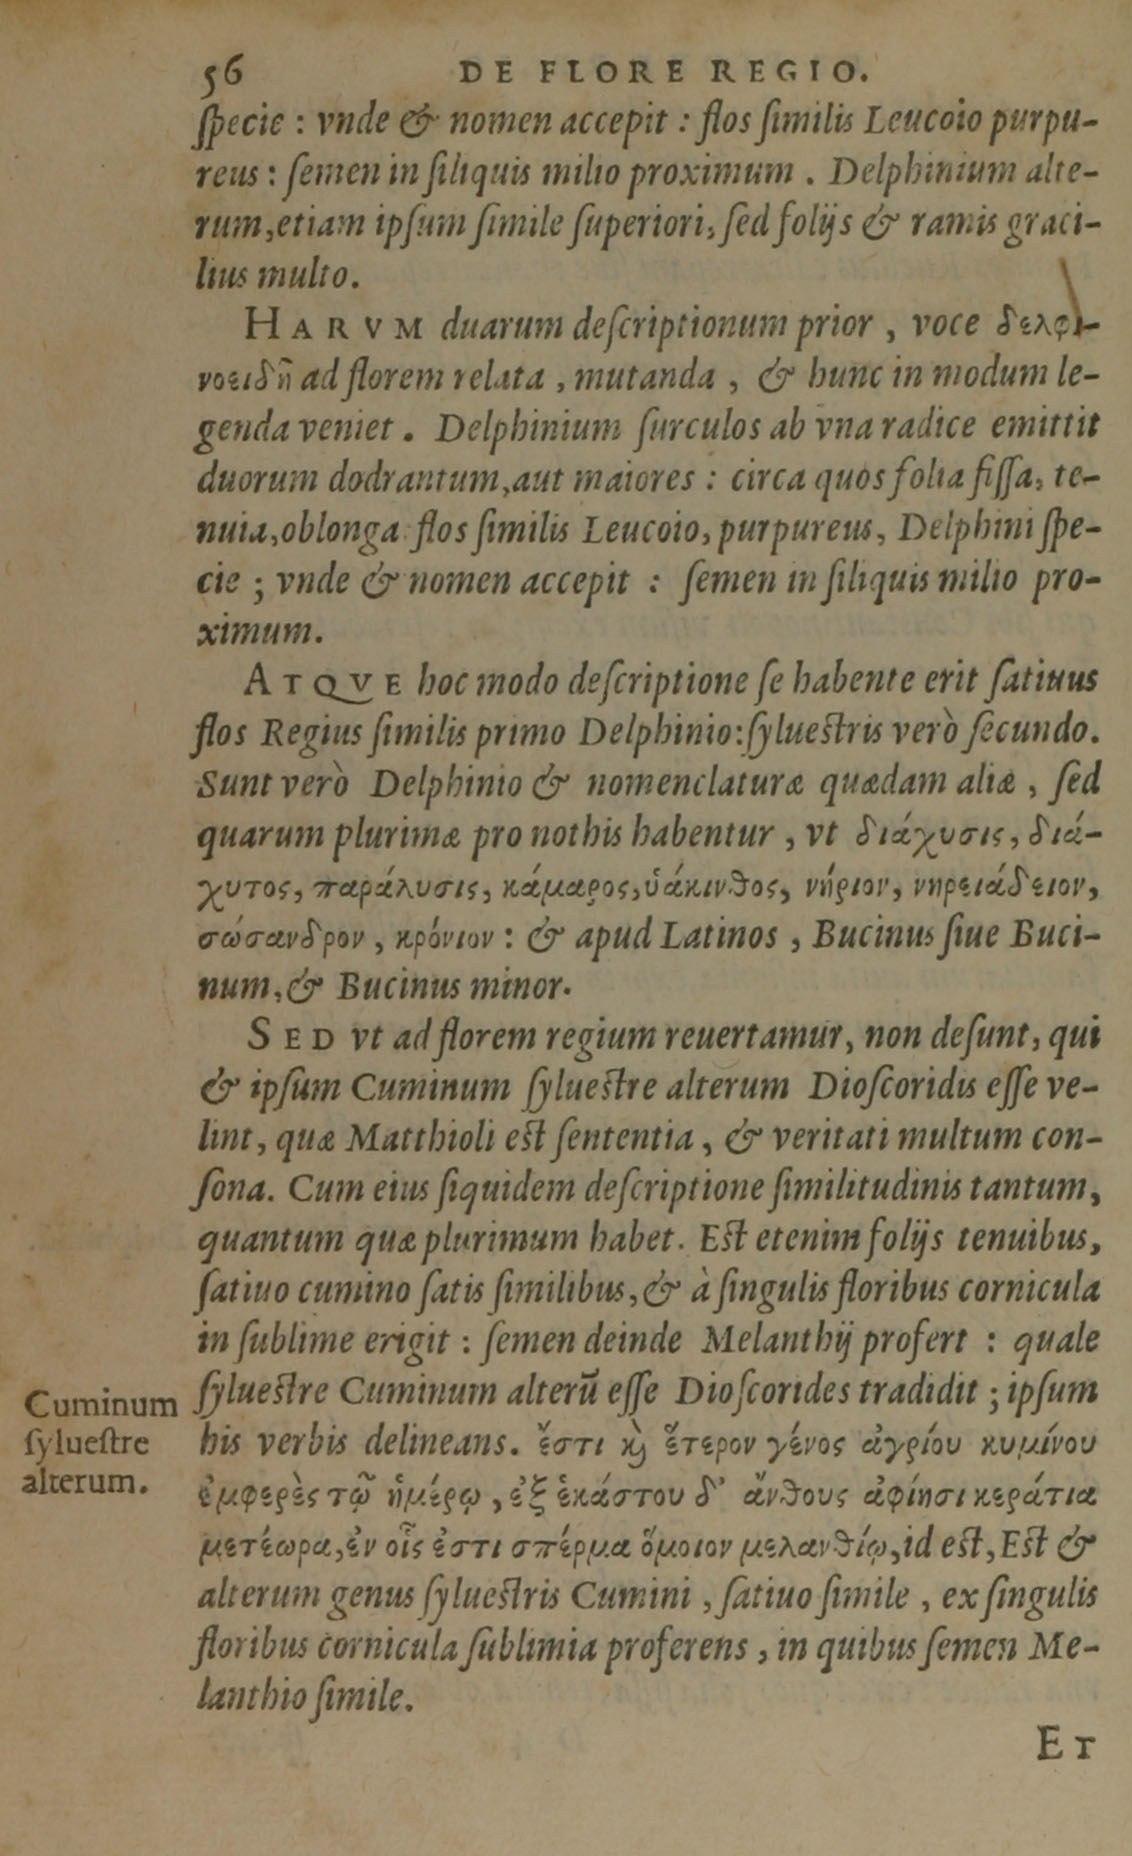 56 DE FLORE REGIO.
ſpecie : vnde & nomen accepit : flos ſimilis Leucoio purpu-
reus : ſemen in ſiliquis milio proximum . Delphinium alte-
rum, etiam ipſum ſimile ſuperiori, ſed folijs & ramis graci-
lius multo.
HARVM duarum deſcriptionum prior , voce δελφι-
νοειδῆ ad florem relata , mutanda , & hunc in modum le-
genda veniet . Delphinium ſurculos ab vna radice emittit
duorum dodrantum, aut maiores : circa quos folia fiſſa, te-
nuia, oblonga flos ſimilis Leucoio, purpureus, Delphini ſpe-
cie ; vnde & nomen accepit : ſemen in ſiliquis milio pro-
ximum.
ATQVE hoc modo deſcriptione ſe habente erit ſatiuus
flos Regius ſimilis primo Delphinio: ſylueſtris verò ſecundo.
Sunt verò Delphinio & nomenclaturæ quædam aliæ , ſed
quarum plurimæ pro nothis habentur , vt διάχυσις, διά-
χυτος, παράλυσις, κάμαρος, ὑάκινθος, νήριον, νηρειάδειον,
σώσανδρον , κρόνιον : & apud Latinos , Bucinus ſiue Buci-
num, & Bucinus minor.
SED vt ad florem regium reuertamur, non deſunt, qui
& ipſum Cuminum ſylueſtre alterum Dioſcoridis eſſe ve-
lint, quæ Matthioli eſt ſententia , & veritati multum con-
ſona. Cum eius ſiquidem deſcriptione ſimilitudinis tantum,
quantum quæ plurimum habet. Eſt etenim folijs tenuibus,
ſatiuo cumino ſatis ſimilibus, & à ſingulis floribus cornicula
in ſublime erigit : ſemen deinde Melanthij profert : quale
ſylueſtre Cuminum alterū eſſe Dioſcorides tradidit ; ipſum
his verbis delineans. ἔστι κ̀ ἕτερον γένος ἀγρίου κυμίνου
ἐμφερὲς τῷ ἡμέρῳ , ἐξ ἑκάστου δ’ ἄνθους ἀφίησι κεράτια
μετέωρα, ἐν οἷς ἐστι σπέρμα ὅμοιον μελανθίῳ, id eſt, Eſt &
alterum genus ſylueſtris Cumini , ſatiuo ſimile , ex ſingulis
floribus cornicula ſublimia proferens , in quibus ſemen Me-
lanthio ſimile.
Cuminum
ſylueſtre
alterum.
ET